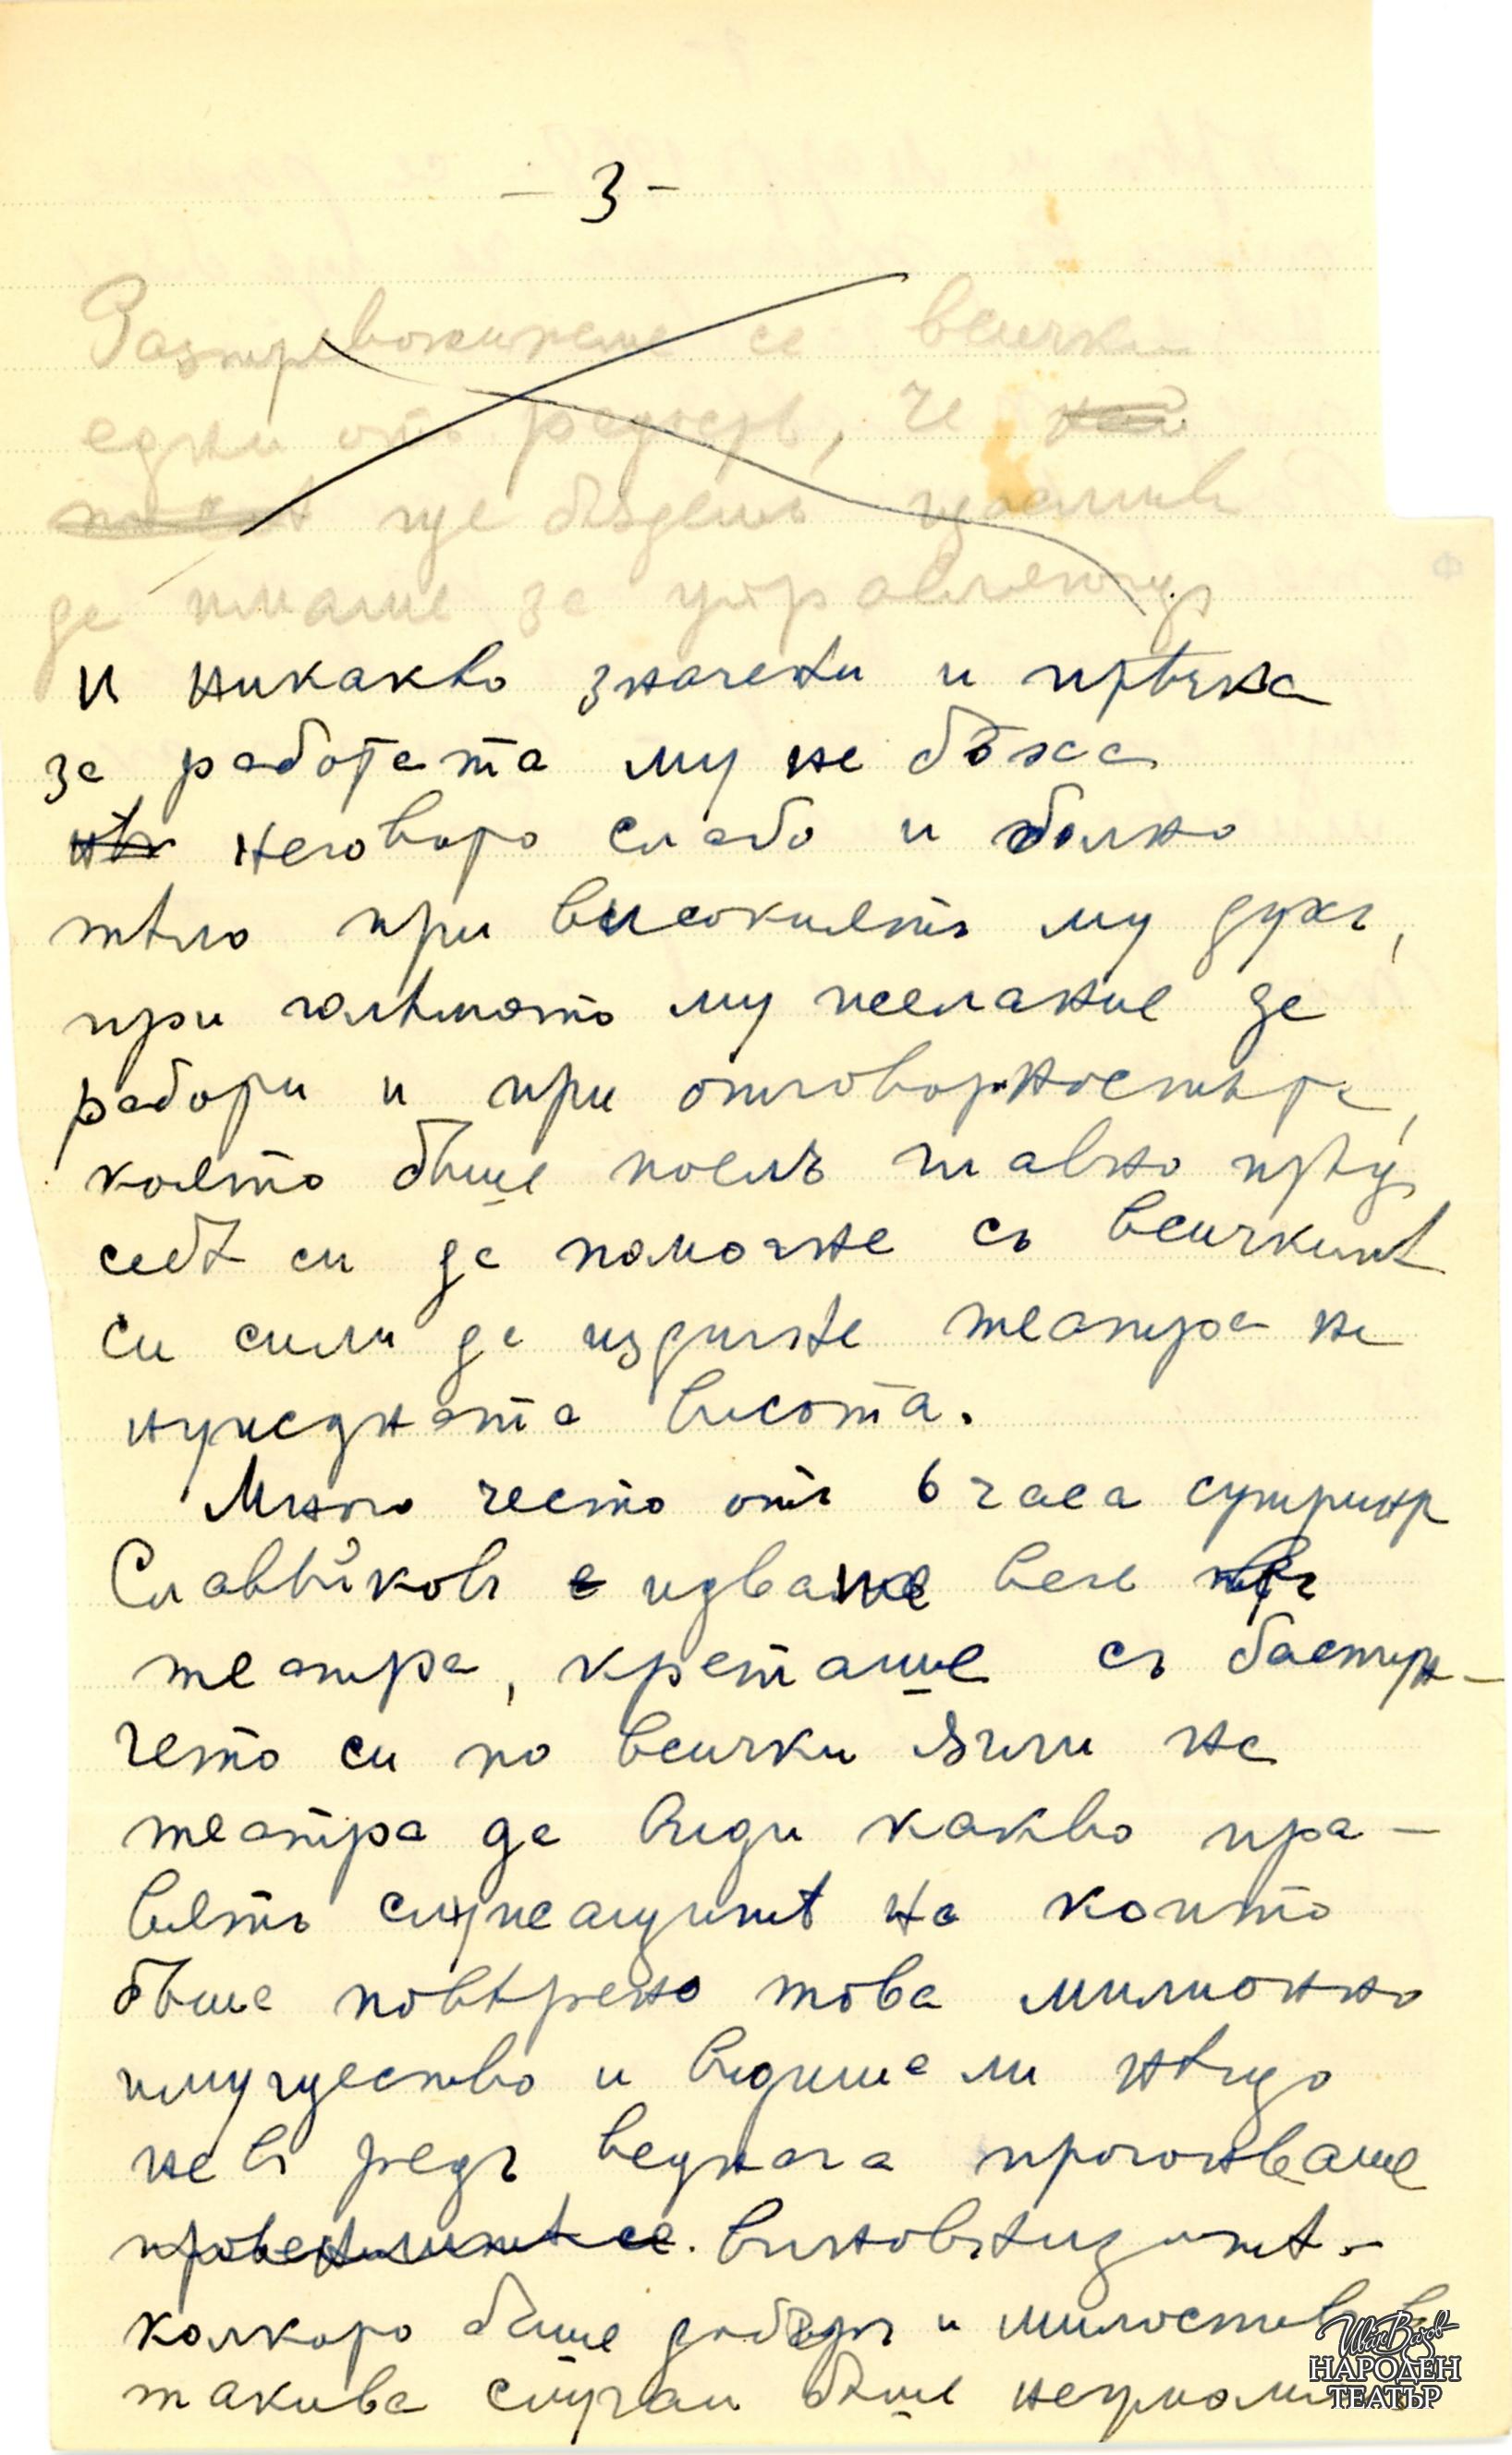 - 3 -
се всички
едни отъ радость, че
ще бъдешъ
да пишеше за
и никакво значени и прѣчка
за работата му не бѣха
нѣг неговото слабо и болно
тѣло при високиятъ му духъ,
при голѣмото му желание да
работи и при отговорностьта,
която бѣше поелъ главно прѣдъ
себѣ си да помогне съ всичкитѣ
си сили да издигне театра на
нужднота висота.
Много често отъ 6 часа сутринь
Славѣйковъ е идваше вече въ
театра, кръсташе съ бастун-
чето си по всички ѫгли на
театра да види какво пра-
вятъ служащитѣ на които
бѣше повѣрено това милионно
имущество и видише ли нѣщо
не въ редъ веднага прогонваше
провенилитѣ се. виновницитѣ. -
колкото бѣше добъръ и милостивъ въ
такива случаи бѣше неумолимъ
Иван Вазов
НАРОДЕН
ТЕАТЪР